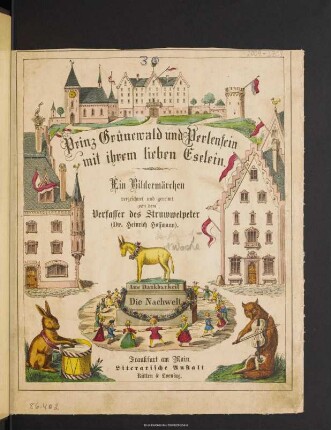 Prinz Grünewald und Perlenfein
mit ihrem lieben Eselein.
Ein Bildermärchen
gezeichnet und gereimt
von dem
Verfasser des Struwwelpeter
(Dr. Heinrich Hoffmann).
Aus Dankbarkeit
Die Nachwelt
Frankfurt am Main.
Literarische Anstalt
Rütten & Loening.
56 402